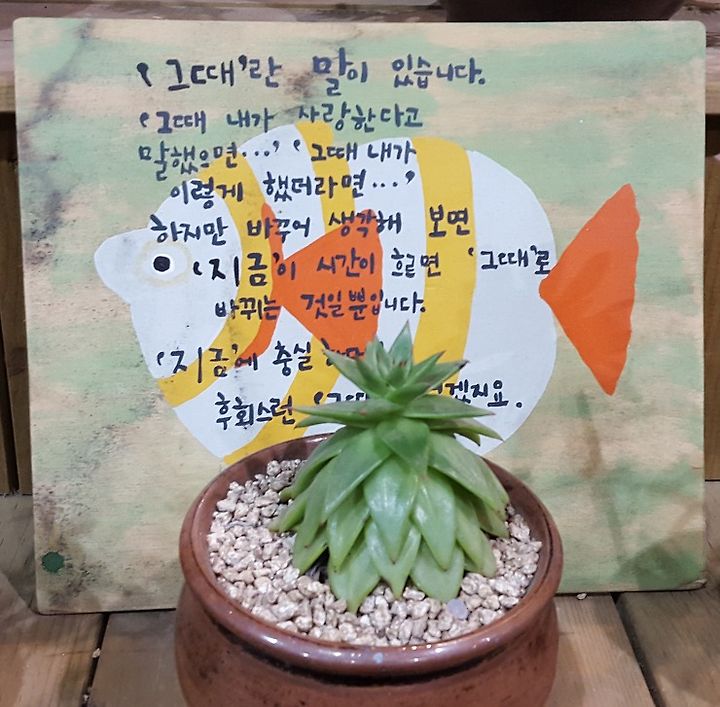 '그때'란 말이 있습니다.
'그때 내가 사랑한다고
말했으면...' '그때 내가
이렇게 했더라면...'
하지만 바꾸어 생각해 보면
'지금'이 시간이 흐르면 '그때'로
바뀌는 것일뿐입니다.
'지금'에 충실
후회스런